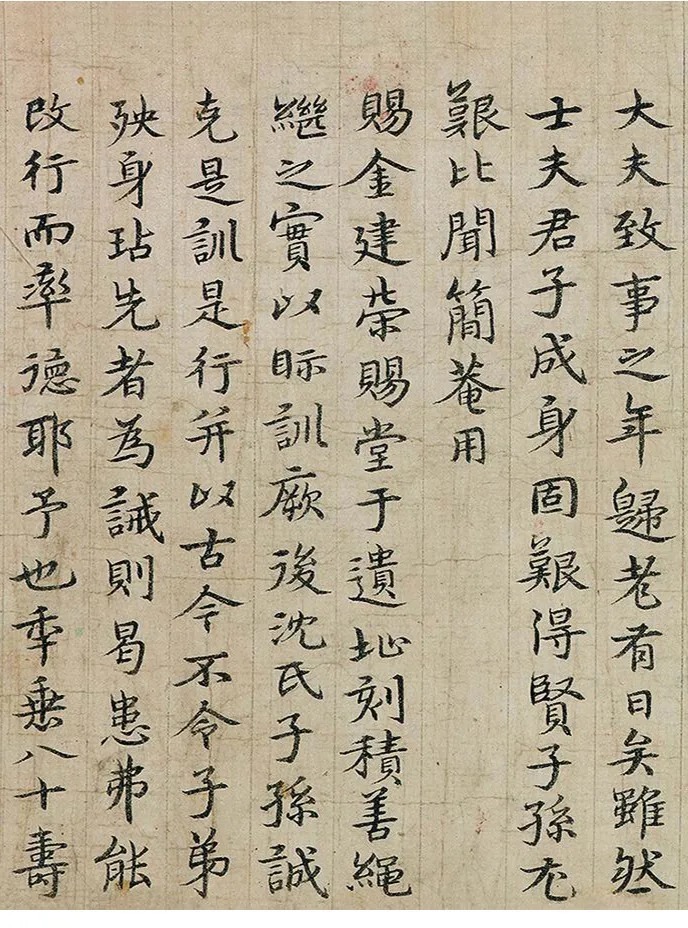 大夫致事之年歸老有日矣雖然
士夫君子成身固艱得賢子孫尤
艱比聞簡菴用
賜金建榮賜堂于遺址刻積善繩
繼之實以眎訓厥後沈氏子孫誠
克是訓是行并以古今不令子弟
殃身玷先者為誡則曷患弗能
改行而率德耶予也年垂八十壽